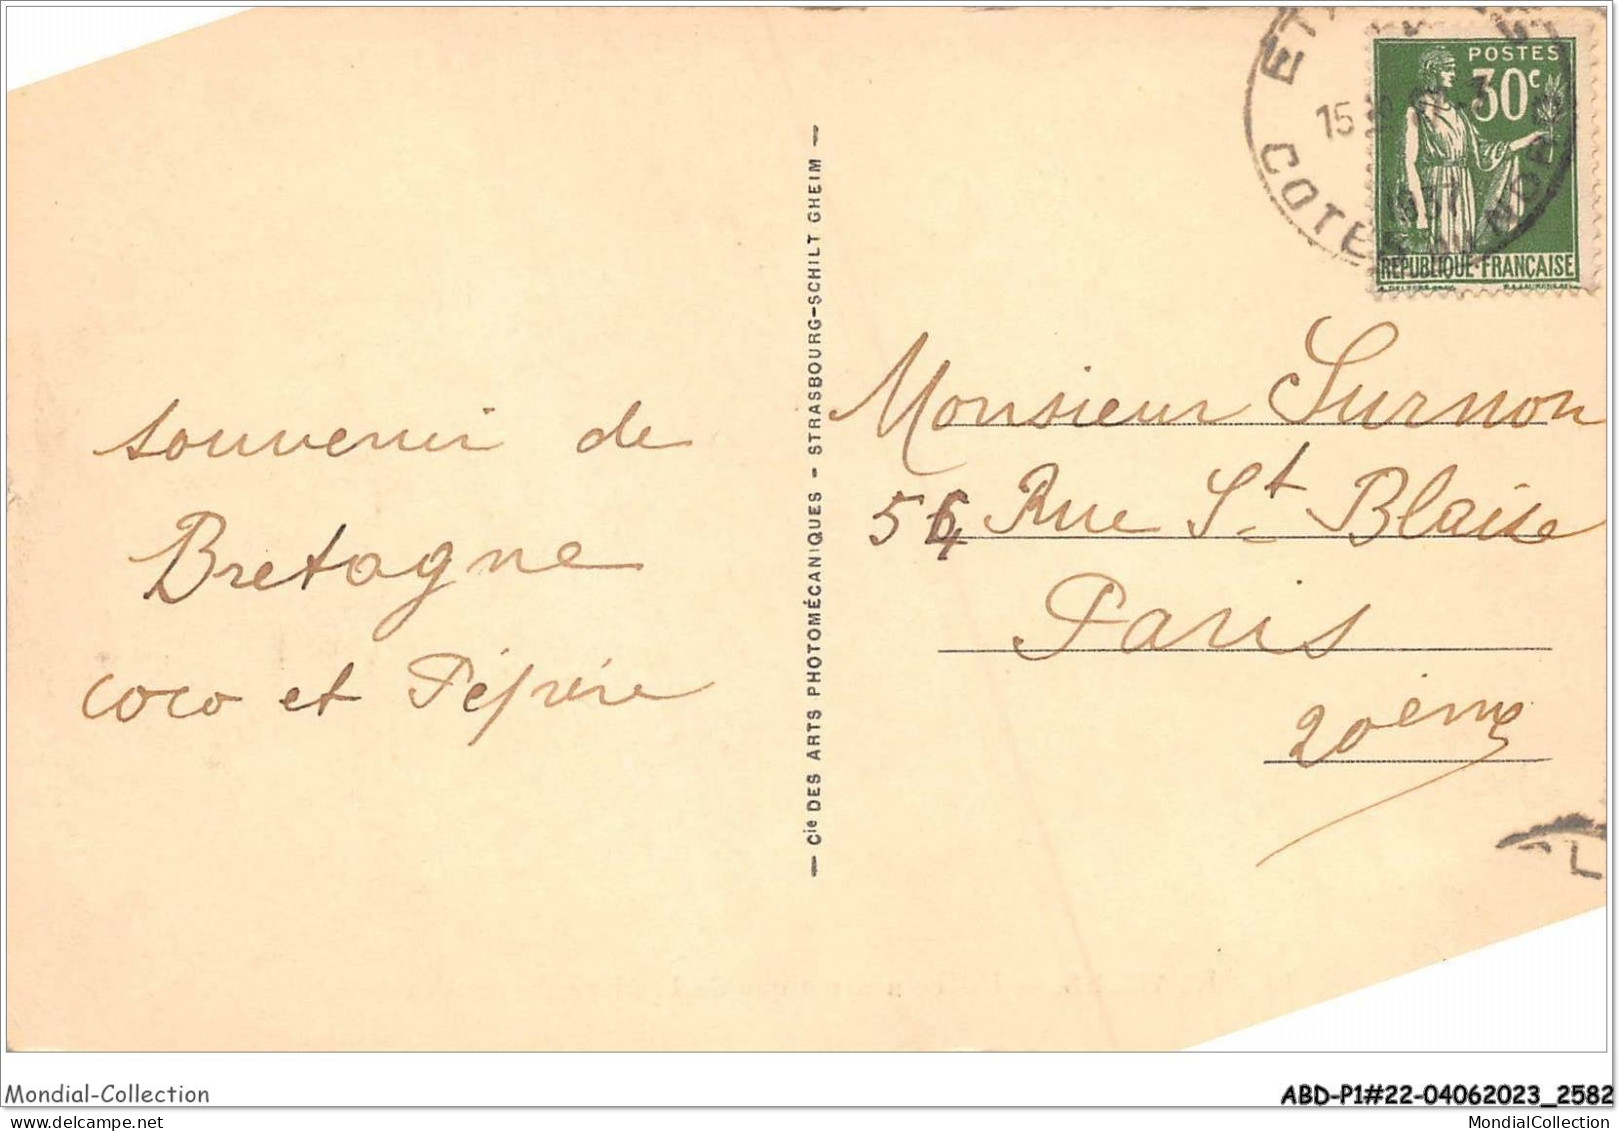 souvenir de
Bretagne
coco et Pépère
— Cie DES ARTS PHOTOMÉCANIQUES - STRASBOURG-SCHILTIGHEIM —
POSTES
30c
RÉPUBLIQUE-FRANÇAISE
15
1937
COTES DU NORD
Monsieur Surnon
54 Rue St Blaise
Paris
20ème
Mondial-Collection
ABD-P1#22-04062023_2582
MondialCollection